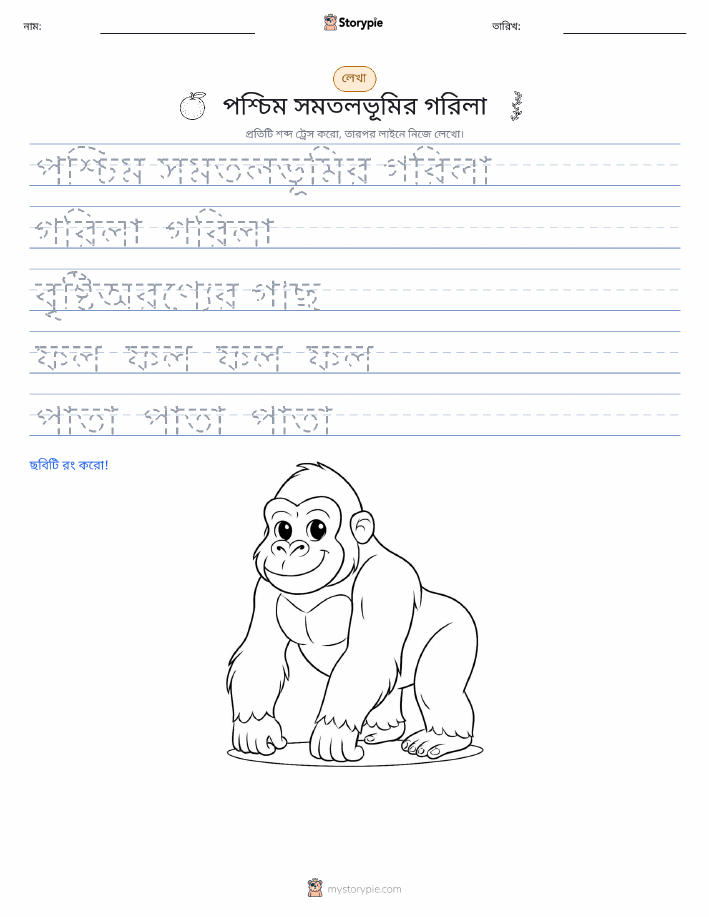 নাম:
Storypie
তারিখ:
লেখা
পশ্চিম সমতলভূমির গরিলা
প্রতিটি শব্দ ট্রেস করো, তারপর লাইনে নিজে লেখো।
পশ্চিম সমতলভূমির গরিলা
গরিলা গরিলা
বৃষ্টিঅরণ্যের গাছ
ফল ফল ফল ফল
পাতা পাতা পাতা
ছবিটি রং করো!
mystorypie.com